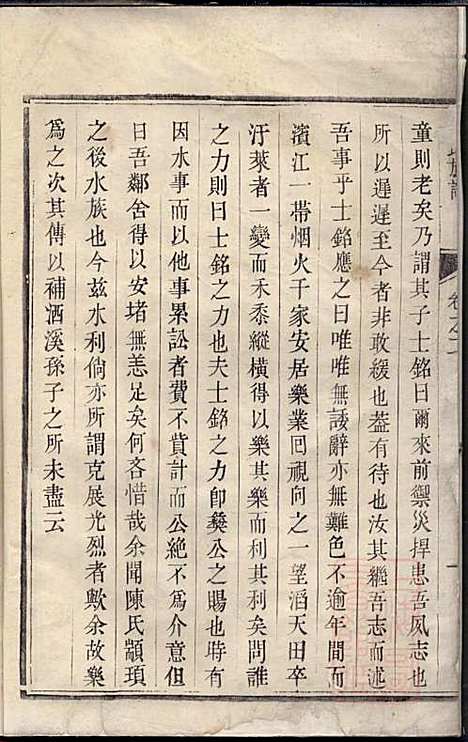 童則老矣乃謂其子士銘曰爾來前禦災捍患吾夙志也
所以遲遲至今者非敢緩也葢有待也汝其繼吾志而述
吾事乎士銘應之曰唯唯無諉辭亦無難色不逾年間而
濱江一帶烟火千家安居樂業回視向之一望滔天田卒
汙萊者一變而禾黍縱橫得以樂其樂而利其利矣問誰
之力則曰士銘之力也夫士銘之力卽彜公之賜也時有
因水事而以他事累訟者費不貲計而公絶不為介意但
曰吾鄰舍得以安堵無恙足矣何吝惜哉余聞陳氏顓頊
之後水族也今兹水利倘亦所謂克展光烈者歟余故樂
爲之次其傳以補洒溪孫子之所未盡云
卷之二